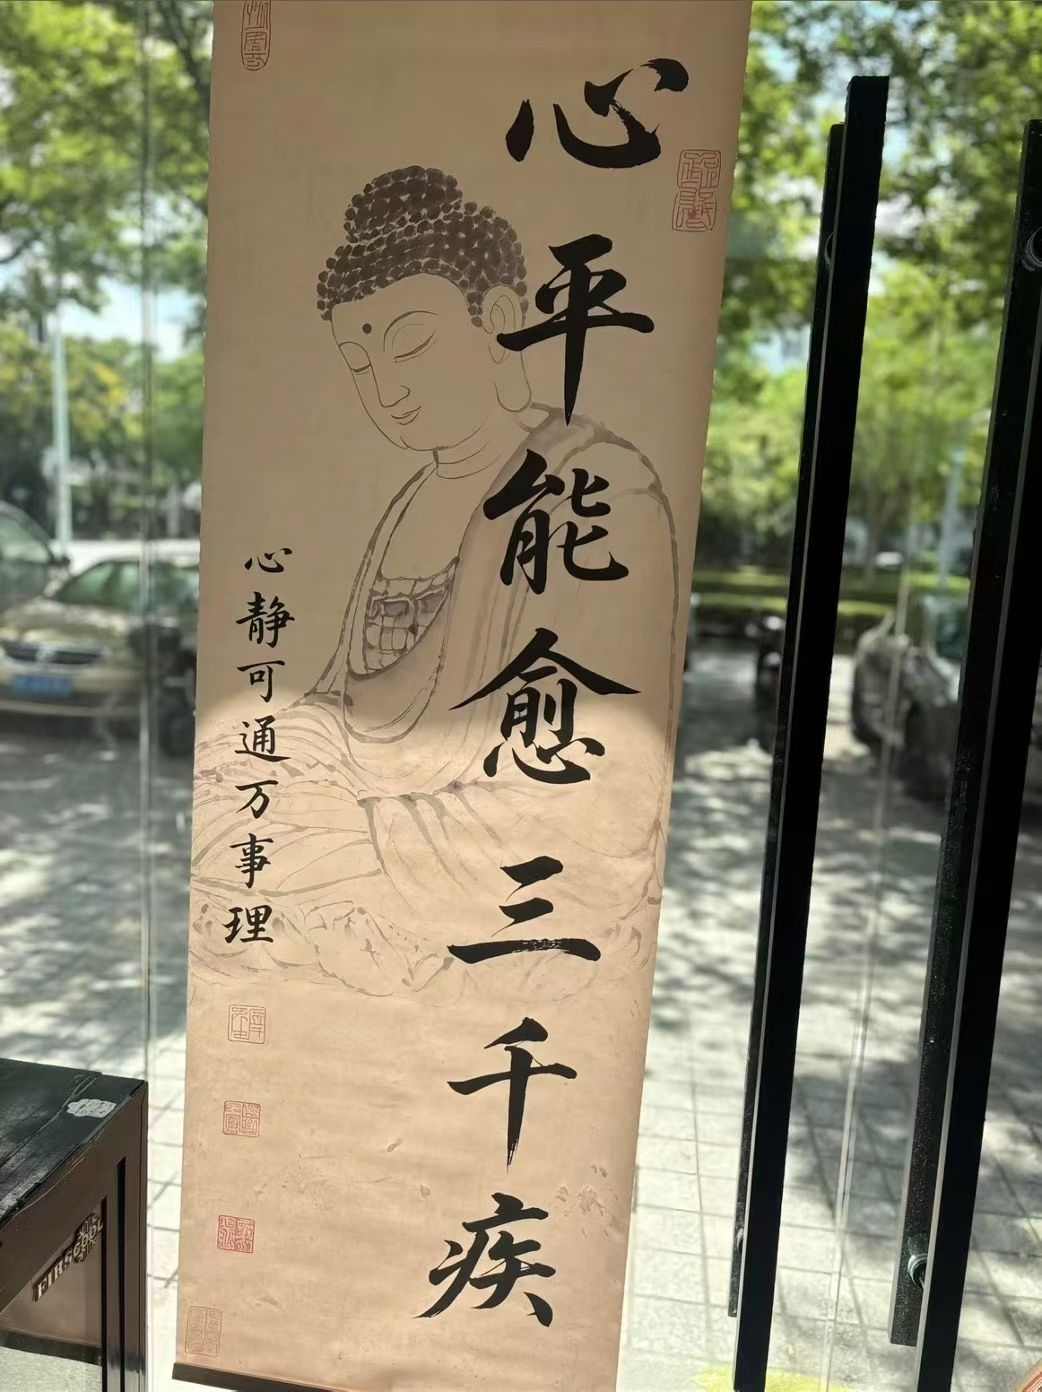 心平能愈三千疾
心静可通万事理
FIRSCOOL